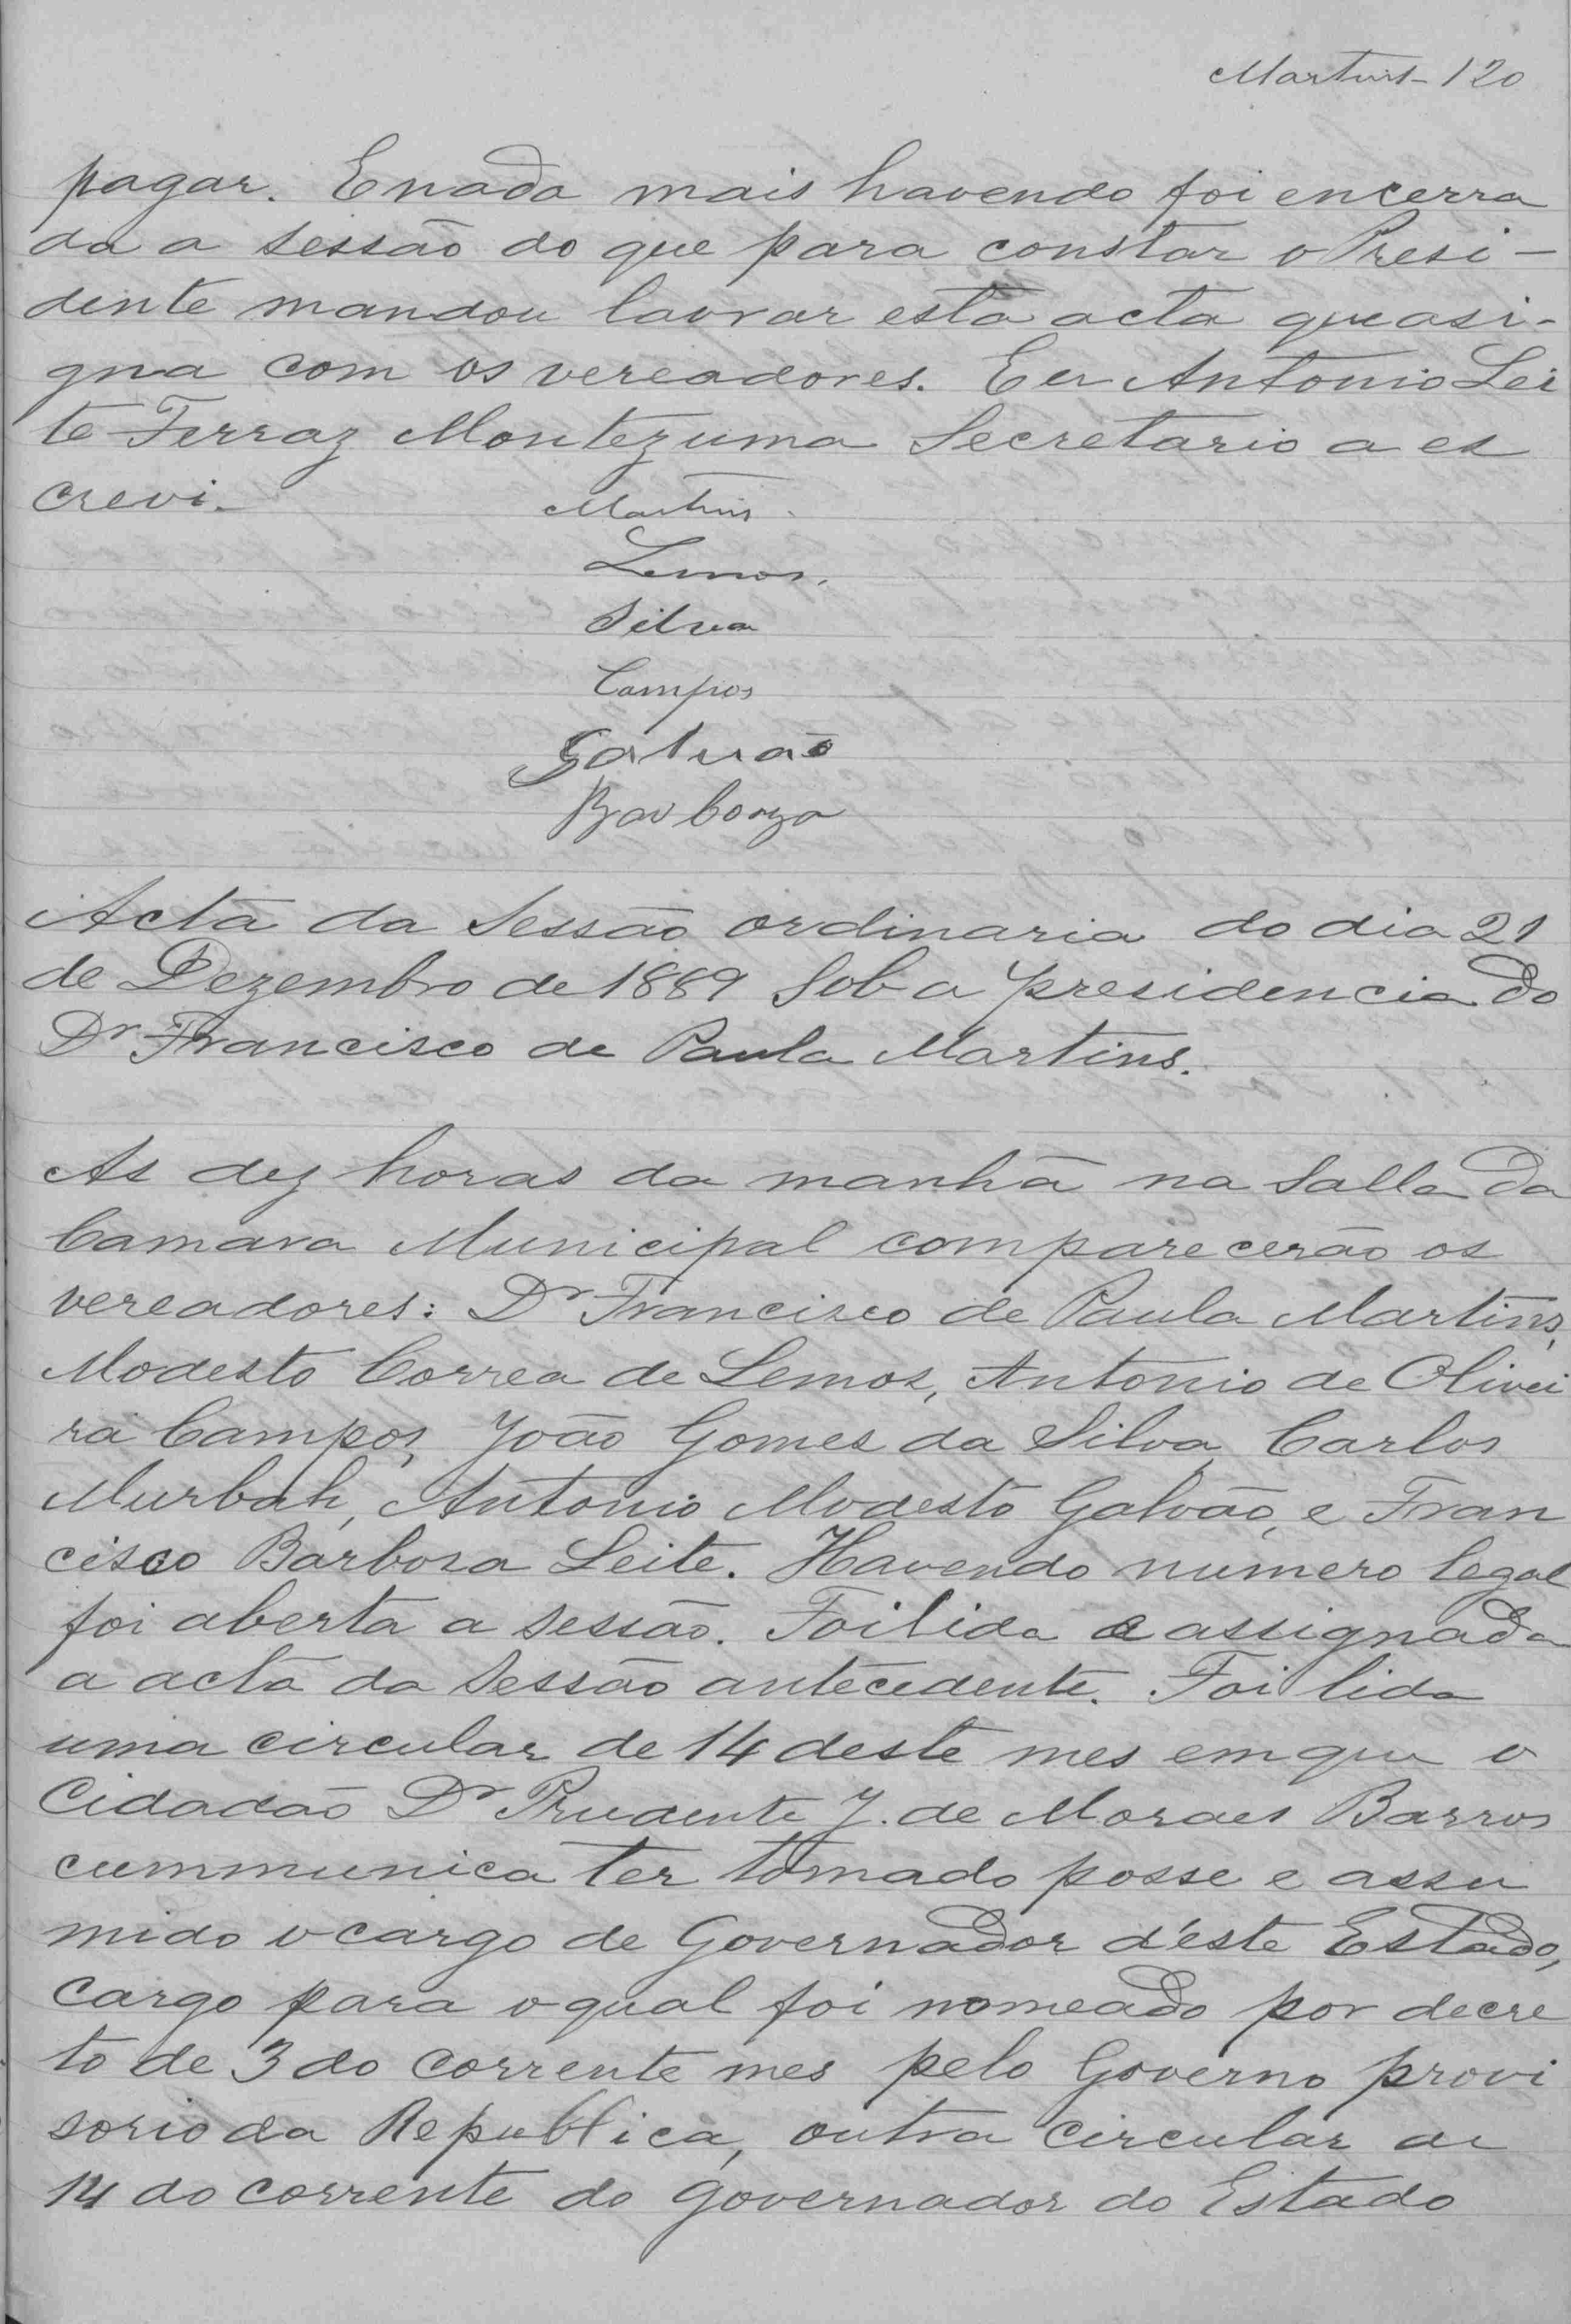 Martins - 120
pagar. E nada mais havendo foi encerra
da a sessão do que para constar o Presi-
dente mandou lavrar esta acta que asi-
gna com os vereadores. Eu Antonio Lei
te Ferraz Montezuma Secretario a es
crevi.
Martins
Lemos.
Silva
Campos
Galvão
Barboza
Acta da Sessão ordinaria do dia 21
de Dezembro de 1889 Sob a presidencia do
Dr Francisco de Paula Martins.
As dez horas da manhã na Salla da
Camara Municipal comparecerão os
vereadores: Dr Francisco de Paula Martins,
Modesto Correa de Lemos, Antonio de Olivei
ra Campos, João Gomes da Silva, Carlos
Murbah, Antonio Modesto Galvão, e Fran
cisco Barbosa Leite. Havendo numero legal
foi aberta a sessão. Foi lida e assignada
a acta da Sessão antecedente. Foi lida
uma circular de 14 deste mes em que o
Cidadão Dr Prudente J. de Moraes Barros
cummunica ter tomado posse e assu
mido o cargo de Governador d'este Estado,
cargo para o qual foi nomeado por decre
to de 3 do corrente mes pelo Governo provi
sorio da Republica, outra circular de
14 do corrente do governador do Estado